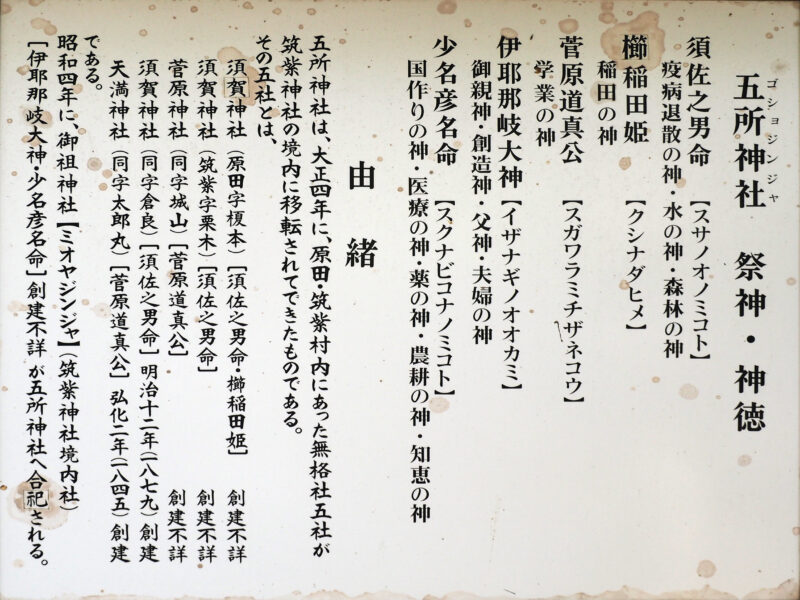 五所神社 祭神・神徳
ゴショジンジャ
須佐之男命【スサノオノミコト】
疫病退散の神 水の神・森林の神
櫛稲田姫 【クシナダヒメ】
稲田の神
菅原道真公 【スガワラミチザネコウ】
学業の神
伊耶那岐大神【イザナギノオオカミ】
御親神・創造神・父神・夫婦の神
少名彦名命 【スクナビコナノミコト】
国作りの神・医療の神・薬の神・農耕の神・知恵の神
由緒
五所神社は、大正四年に、原田・筑紫村内にあった無格社五社が
筑紫神社の境内に移転されてできたものである。
その五社とは、
須賀神社(原田字榎本)[須佐之男命・櫛稲田姫] 創建不詳
須賀神社(筑紫字栗木)[須佐之男命] 創建不詳
菅原神社(同字城山)[菅原道真公] 創建不詳
須賀神社(同字倉良)[須佐之男命]明治十二年(一八七九)創建
天満神社(同字太郎丸)[菅原道真公]弘化二年(一八四五)創建
である。
昭和四年に、御祖神社【ミオヤジンジャ】(筑紫神社境内社)
[伊耶那岐大神・少名彦名命]創建不詳が五所神社へ合祀される。